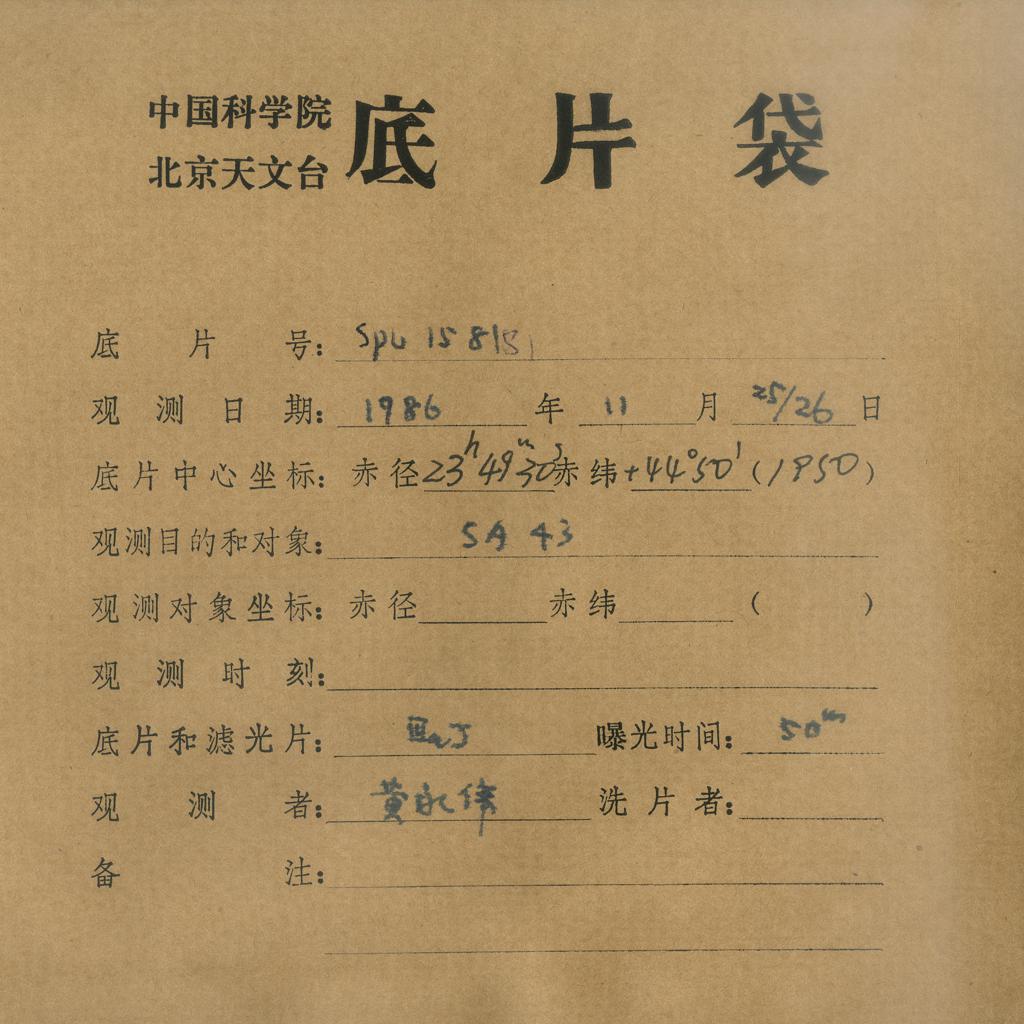 中国科学院
北京天文台
底片袋
底片号：
观测日期： 1986 年 11 月 25/26 日
底片中心坐标： 赤径 23ʰ49ᵐ30ˢ 赤纬 +44°50′ (1950)
观测目的和对象： SA 43
观测对象坐标： 赤径 赤纬 ( )
观测时刻：
底片和滤光片： ⅢaJ 曝光时间： 50ᵐ
观测者： 黄永伟 洗片者：
备注：